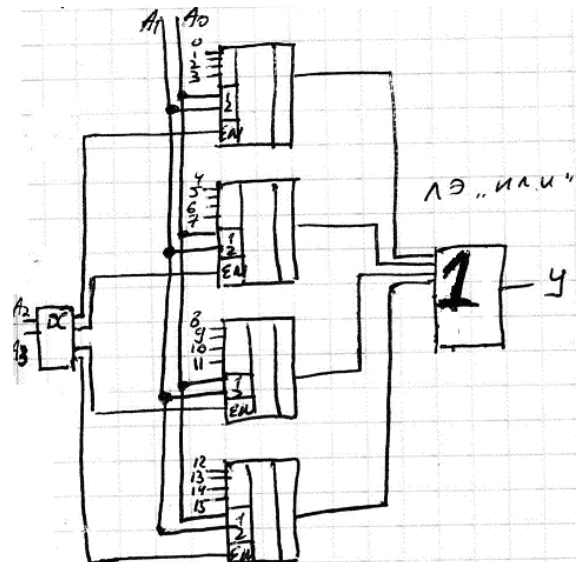 A1 A0
0
1
2
3
1
2
EN
4
5
6
7
1
2
EN
ЛЭ „ИЛИ"
1
У
A2
A3
DC
8
9
10
11
1
2
EN
12
13
14
15
1
2
EN